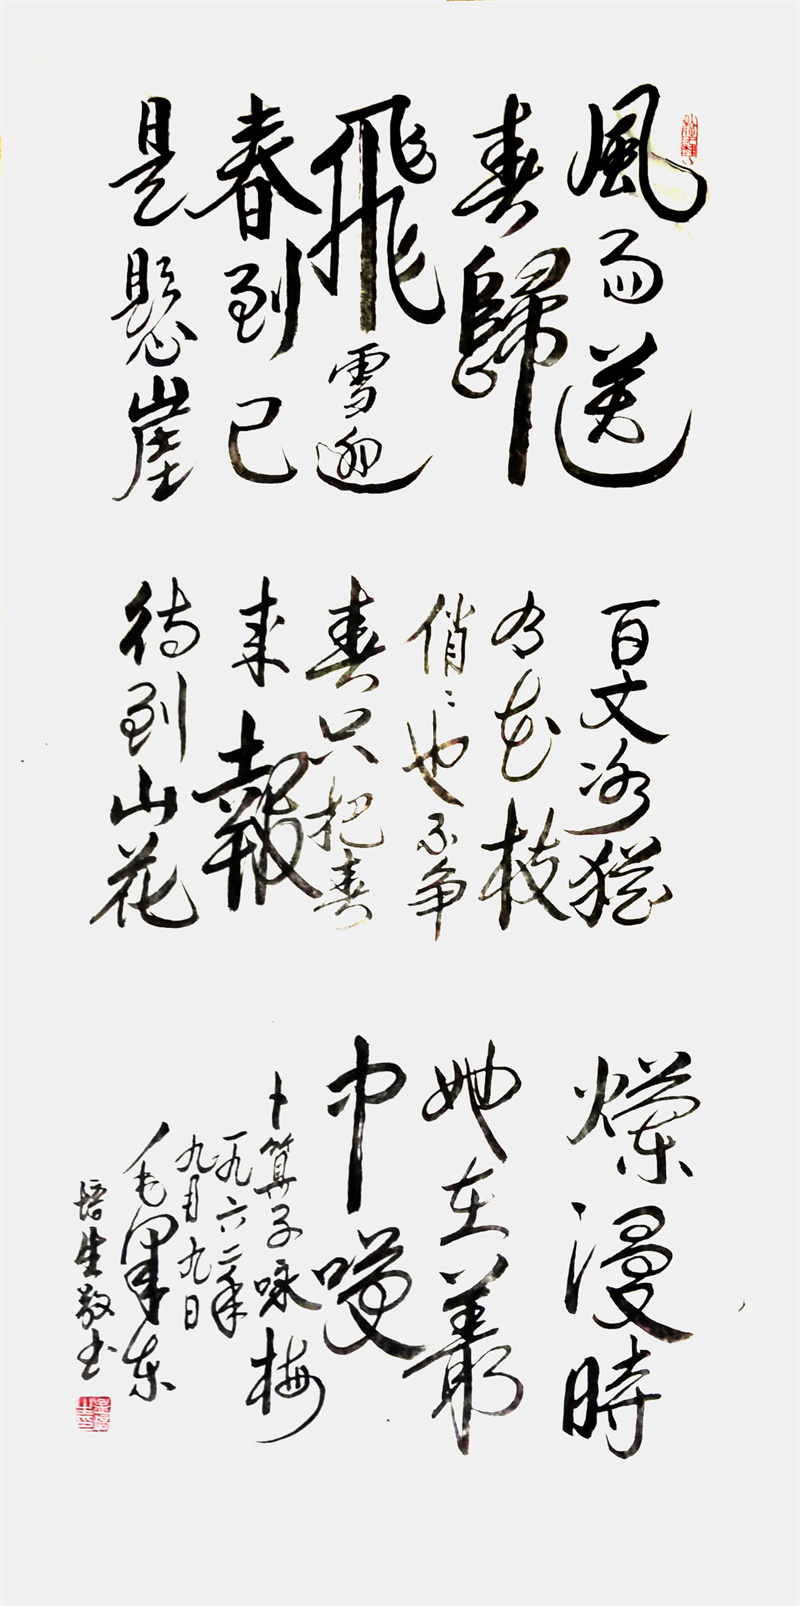 風雨送
春歸
飛雪迎
春到已
是懸崖
百丈冰猶
有花枝
俏〻也不争
春只把春
来報
待到山花
爛漫時
她在叢
中嘆
卜算子咏梅
一九六二年
九月九日
毛澤东
培生敬书